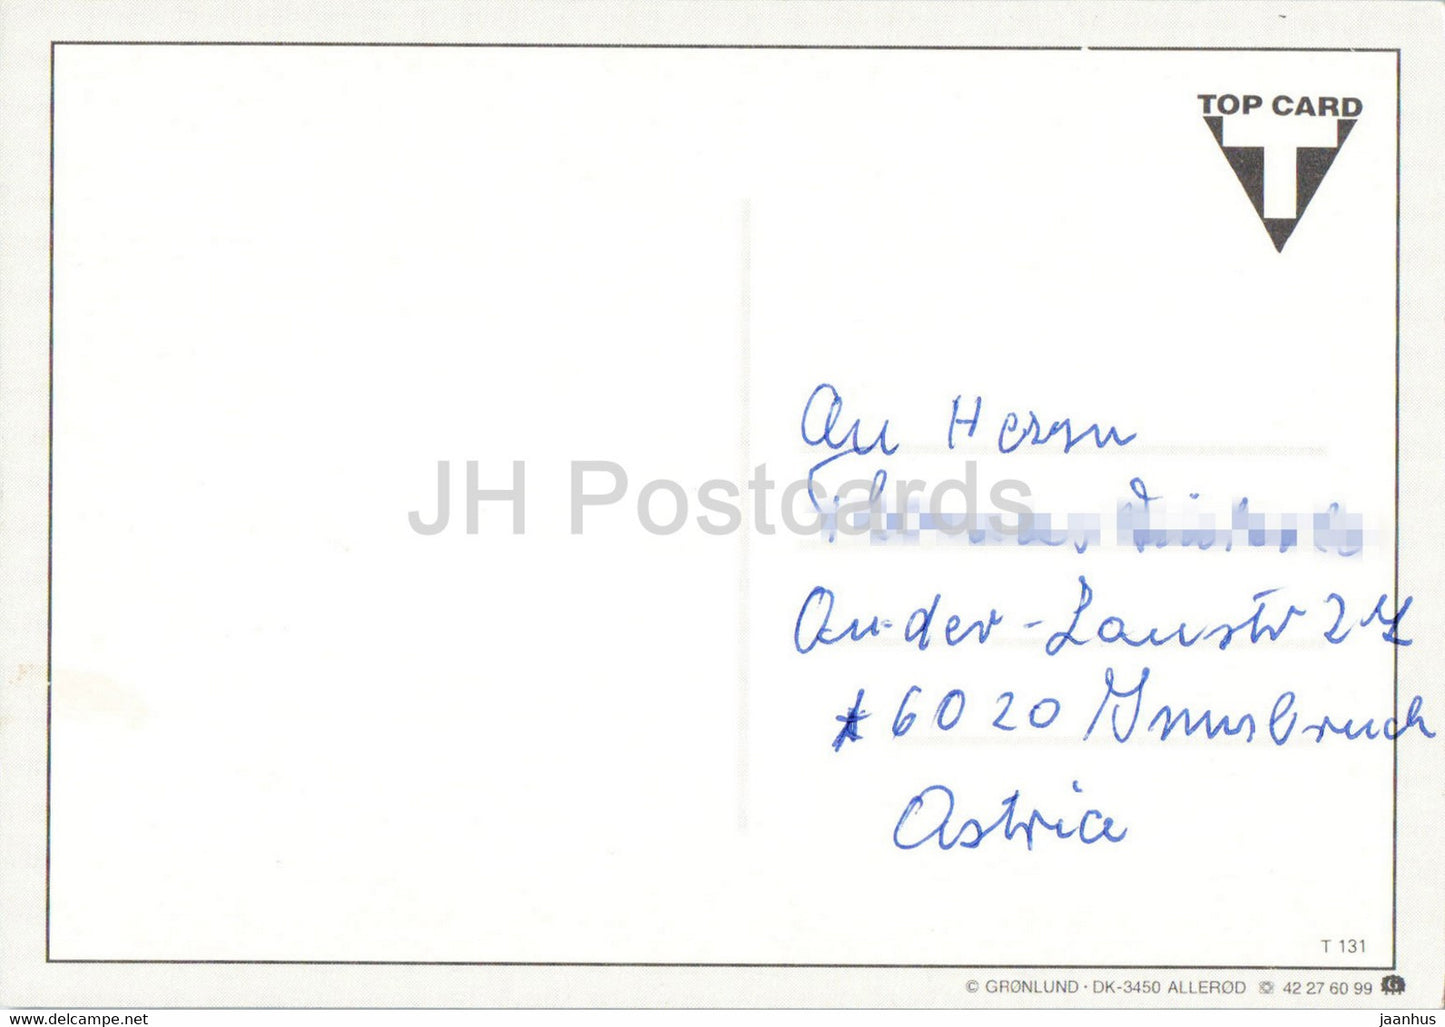 TOP CARD
T
An Herrn
JH Postcards
An-der-Lanstr
6020 Innsbruck
Astria
T 131
© GRØNLUND · DK-3450 ALLERØD ☏ 42 27 60 99
www.delcampe.net
jaanhus